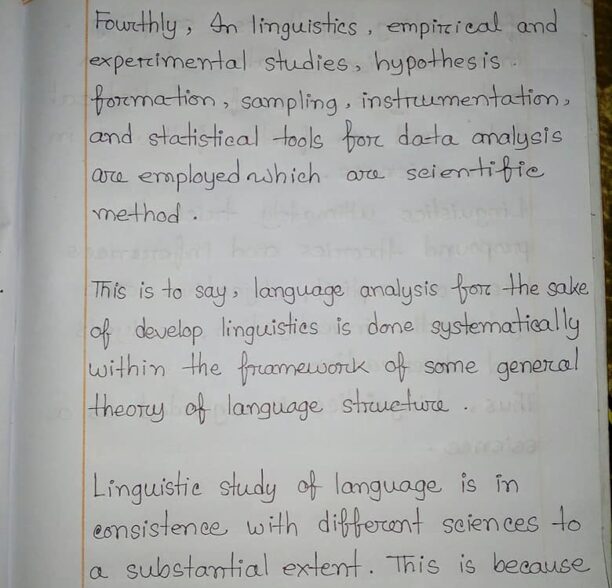 Fourthly, In linguistics, empirical and
experimental studies, hypothesis
formation, sampling, instrumentation,
and statistical tools for data analysis
are employed which are scientific
method.
This is to say, language analysis for the sake
of develop linguistics is done systematically
within the framework of some general
theory of language structure.
Linguistic study of language is in
consistence with different sciences to
a substantial extent. This is because